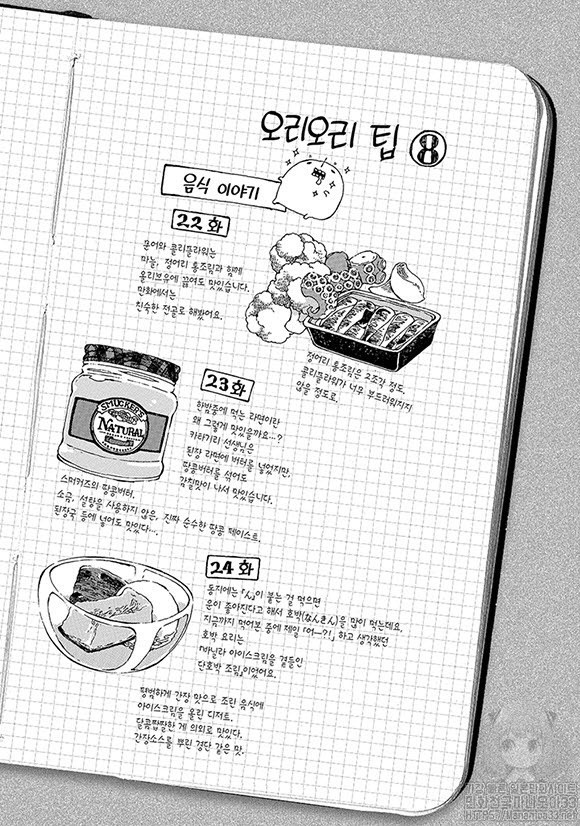 오리오리 팁 8
음식 이야기
22화
문어와 콜리플라워는
마늘, 정어리 통조림과 함께
올리브유에 끓여도 맛있습니다.
만화에서는
친숙한 전골로 해봤어요.
정어리 통조림은 2조각 정도.
콜리플라워가 너무 부드러워지지
않을 정도로.
SMUCKER'S
NATURAL
23화
한밤중에 먹는 라면이란
왜 그렇게 맛있을까요...?
카타기리 선생님은
된장 라면에 버터를 넣었지만,
땅콩버터를 섞어도
감칠맛이 나서 맛있습니다.
스머커즈의 땅콩버터.
소금, 설탕을 사용하지 않은, 진짜 순수한 땅콩 페이스트.
된장국 등에 넣어도 맛있다...
24화
동지에는 「ん」이 붙는 걸 먹으면
운이 좋아진다고 해서 호박(なんきん)을 많이 먹는데요.
지금까지 먹어본 중에 제일 「어—?!」 하고 생각했던
호박 요리는
「바닐라 아이스크림을 곁들인
단호박 조림」이었어요.
평범하게 간장 맛으로 조린 음식에
아이스크림을 올린 디저트.
달콤짭짤한 게 의외로 맛있다.
간장소스를 뿌린 경단 같은 맛.